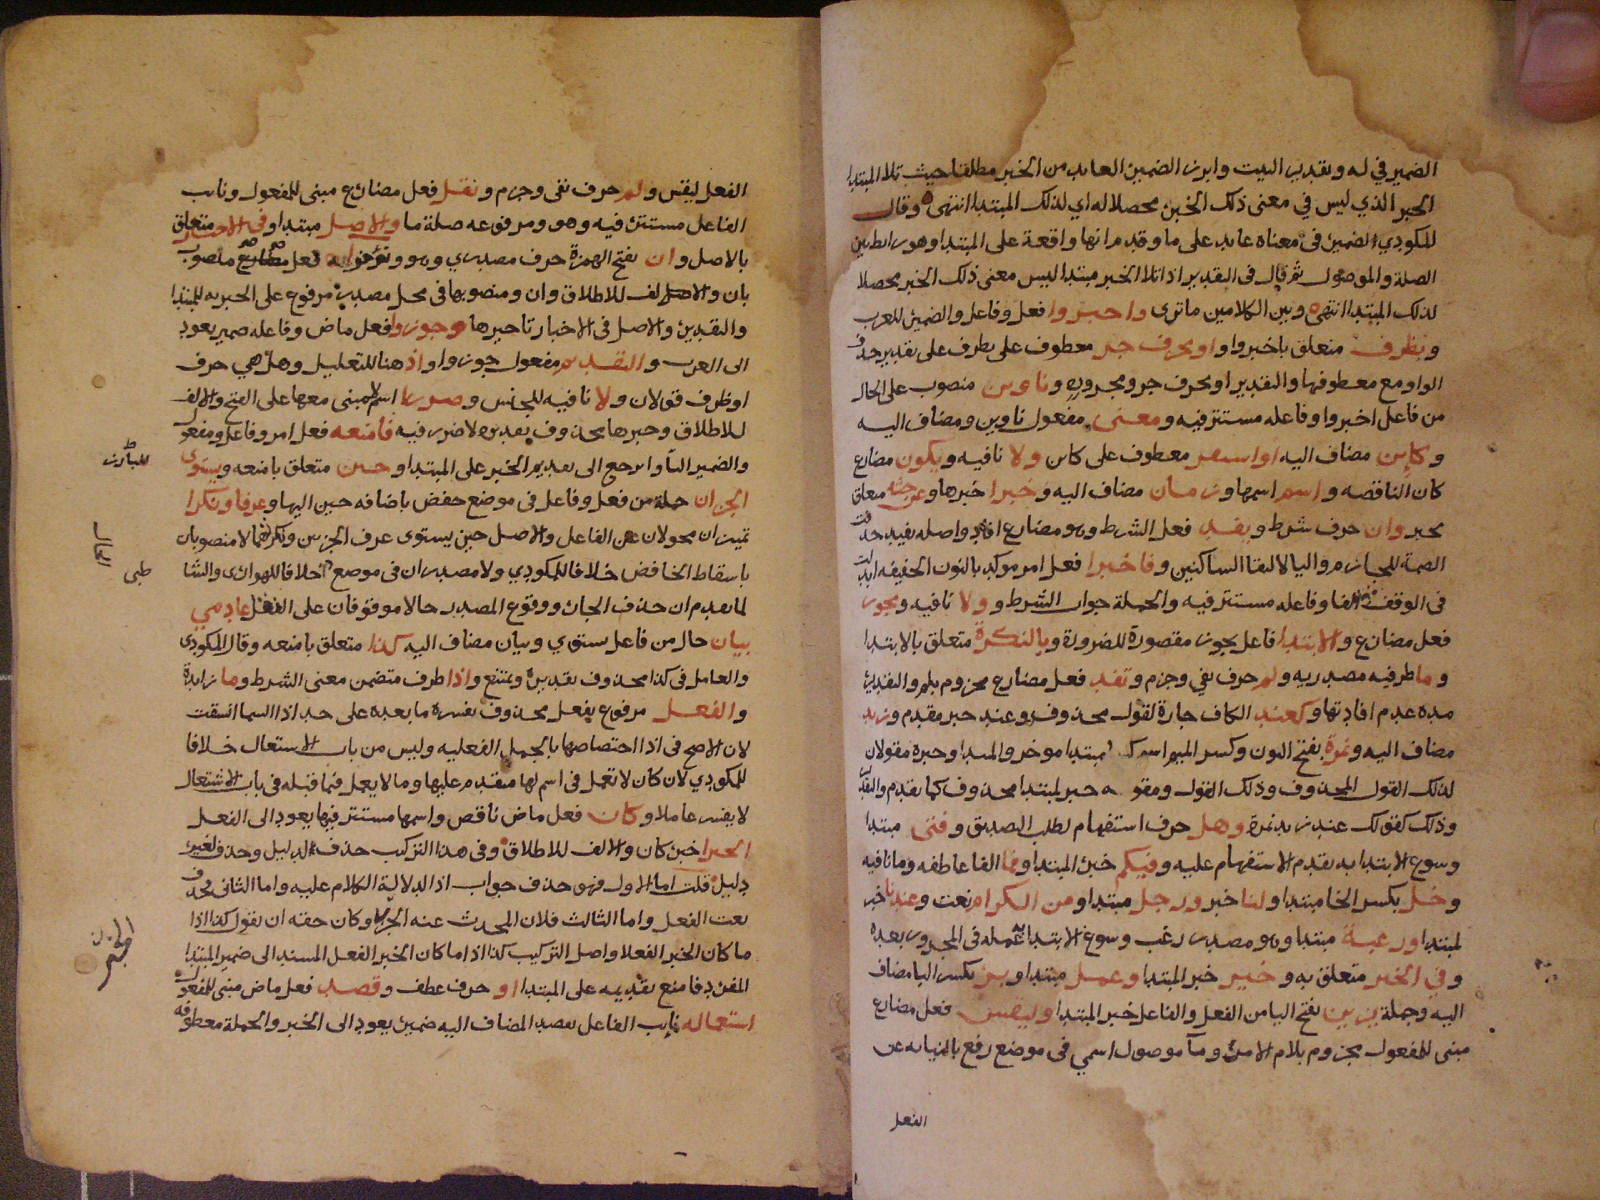 الضمير في له وتقدير البيت وابرزن الضمير العايد من الخبر مطلقا حيث تلا المبتدا
الخبر الذي ليس في معنى ذلك الخبر محصلا له اي لذلك المبتدا انتهى وقال
المكودي الضمير في معناه عايد على ما وقدم انها واقعة على المبتدا وهو رابط بين
الصلة والموصول ثم قال في التقدير اذا تلا الخبر مبتدا ليس معنى ذلك الخبر محصلا
لذلك المبتدا انتهى وبين الكلامين ما ترى واخبروا فعل وفاعل والضمير للعرب
وبظرف متعلق باخبروا واو بحرف جر معطوف على بظرف على تقدير حذف
الواو مع معطوفها والتقدير او بحرف جر ومجروره وناوين منصوب على الحال
من فاعل اخبروا وفاعله مستتر فيه ومعنى مفعول ناوين ومضاف اليه
وكاين مضاف اليه او استقر معطوف على كاين ولا نافيه ويكون مضارع
كان الناقصه واسم اسمها وزمان مضاف اليه وخبرا خبرها وعن جثه متعلق
بخبر وان حرف شرط ويفد فعل الشرط وهو مضارع افاد واصله يفيد حذفت
الضمة للجازم واليا لالتقا الساكنين وفاخبرا فعل امر موكد بالنون الخفيفه ابدلت
في الوقف الفا وفاعله مستتر فيه والجملة جواب الشرط و ولا نافيه ويجوز
فعل مضارع والابتدا فاعل يجوز مقصورة للضرورة وبالنكرة متعلق بالابتدا
وما ظرفيه مصدريه ولم حرف نفي وجزم وتفد فعل مضارع مجزوم بلم والتقدير
مده عدم افادتها وكعند الكاف جارة لقول محذوف وعند خبر مقدم وزيد
مضاف اليه ونمرة بفتح النون وكسر الميم مبتدا موخر والمبتدا وخبره مقولان
لذلك القول المحذوف وذلك القول ومقوله خبر لمبتدا محذوف كما تقدم والتقدير
وذلك كقولك عند زيد نمرة وهل حرف استفهام لطلب الصديق وفتى مبتدا
وسوغ الابتدا به تقدم الاستفهام عليه وفيكم خبر المبتدا وفما الفا عاطفه وما نافيه
وخل بكسر الخا مبتدا ولنا خبر ورجل مبتدا ومن الكرام نعت وعندنا خبر
المبتدا ورغبة مبتدا وهو مصدر رغب وسوغ الابتدا به عمله في المجرور بعده
وفي الخير متعلق به وخير خبر المبتدا وعمل مبتدا وبر بكسر البا مضاف
اليه وجملة يزين بفتح اليا من الفعل والفاعل خبر المبتدا وليقس فعل مضارع
مبنى للمفعول مجزوم بلام الامر وما موصول اسمي في موضع رفع بالنيابه عن
الفعل
الفعل ليقس ولم حرف نفى وجزم ونقل فعل مضارع مبنى للمفعول ونايب
الفاعل مستتر فيه وهو ومرفوعه صلة ما والاصل مبتدا وفي الاخبار متعلق
بالاصل وان بفتح الهمزة حرف مصدري وهو وتوخرا فعل مضارع منصوب
بان والالف للاطلاق وان ومنصوبها في محل مصدر مرفوع على الخبريه للمبتدا
والتقدير والاصل في الاخبار تاخيرها وجوزوا فعل ماض وفاعله ضمير يعود
الى العرب والتقديم مفعول جوزوا واذ هنا للتعليل وهل هي حرف
او ظرف قولان ولا نافيه للجنس وضررا اسم لا مبنى معها على الفتح والالف
للاطلاق وخبرها محذوف تقديره لا ضرر فيه فامنعه فعل امر وفاعل ومفعول
والضمير البارز يرجع الى تقديم الخبر على المبتدا وحين متعلق بامنعه ويستوى
الجزان جملة من فعل وفاعل في موضع خفض باضافه حين اليها وعرفا ونكرا
تميزان محولان عن الفاعل والاصل حين يستوى عرف الجزين ونكرهما لا منصوبان
باسقاط الخافض خلافا للمكودي ولا مصدران في موضع الحال خلافا للهوارى والشا
طبي
لما تقدم ان حذف الجار ووقوع المصدر حالا موقوفان على النقل عادمي
بيان حال من فاعل يستوي وبيان مضاف اليه كذا متعلق بامنعه وقال المكودى
والعامل في كذا محذوف تقديره ويمتنع واذا ظرف متضمن معنى الشرط وما زايدة
والفعل مرفوع بفعل محذوف يفسره ما بعده على حد اذا السما انشقت
لان الاصح في اذا اختصاصها بالجمل الفعليه وليس من باب الاشتغال خلافا
للمكودي لان كان لا تعمل في اسم لها متقدم عليها وما لا يعمل فيما قبله في باب الاشتغال
لا يفسر عاملا وكان فعل ماض ناقص واسمها مستتر فيها يعود الى الفعل
الخبرا خبر كان والالف للاطلاق وفي هذا التركيب حذف لدليل وحذف لغير
دليل قلت اما الاول فهو حذف جواب اذا لدلالة الكلام عليه واما الثاني فحذف
نعت الفعل واما الثالث فلان المحدث عنه الخبر وكان حقه ان يقول كذا اذا
ما كان الخبر الفعلا واصل التركيب كذا اذا ما كان الخبر الفعل المسند الى ضمير المبتدا
المفرد فامنع تقديمه على المبتدا او حرف عطف وقصد فعل ماض مبنى للمفعول
استعماله نايب الفاعل بقصد المضاف اليه ضمير يعود الى الخبر والجملة معطوفه
للبارز
الحال